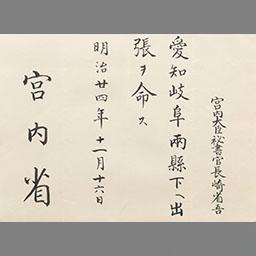 宮内大臣秘書官長崎省吾
愛知岐阜両縣下ヘ出
張ヲ命ス
明治廿四年十一月十六日
宮内省